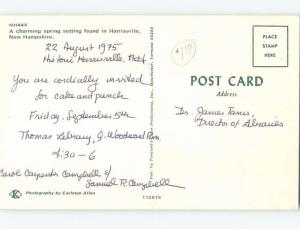 NH448
A charming spring setting found in Harrisville,
New Hampshire.
22 August 1975
Historic Harrisville, N.H.
You are cordially invited
for cake and punch
Friday, September 5th
Thomas Library, Q. Woodward Rm.
4:30-6
Carol Carpenter Campbell &
Samuel R. Campbell
Photography by Carleton Allen
112676
Manchester, Vermont 05254
PLACE
STAMP
HERE
POST CARD
Address
Dr. James Tanis,
Director of Libraries